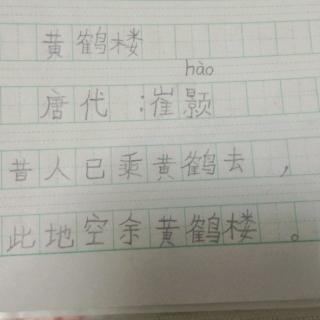 黄鹤楼
hào
唐代:崔颢
昔人已乘黄鹤去，
此地空余黄鹤楼。